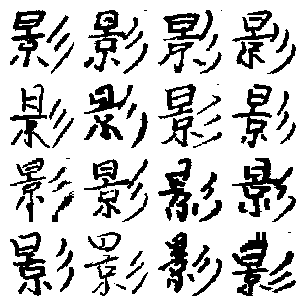 影影影影
影影影影
影影影影
影影影影